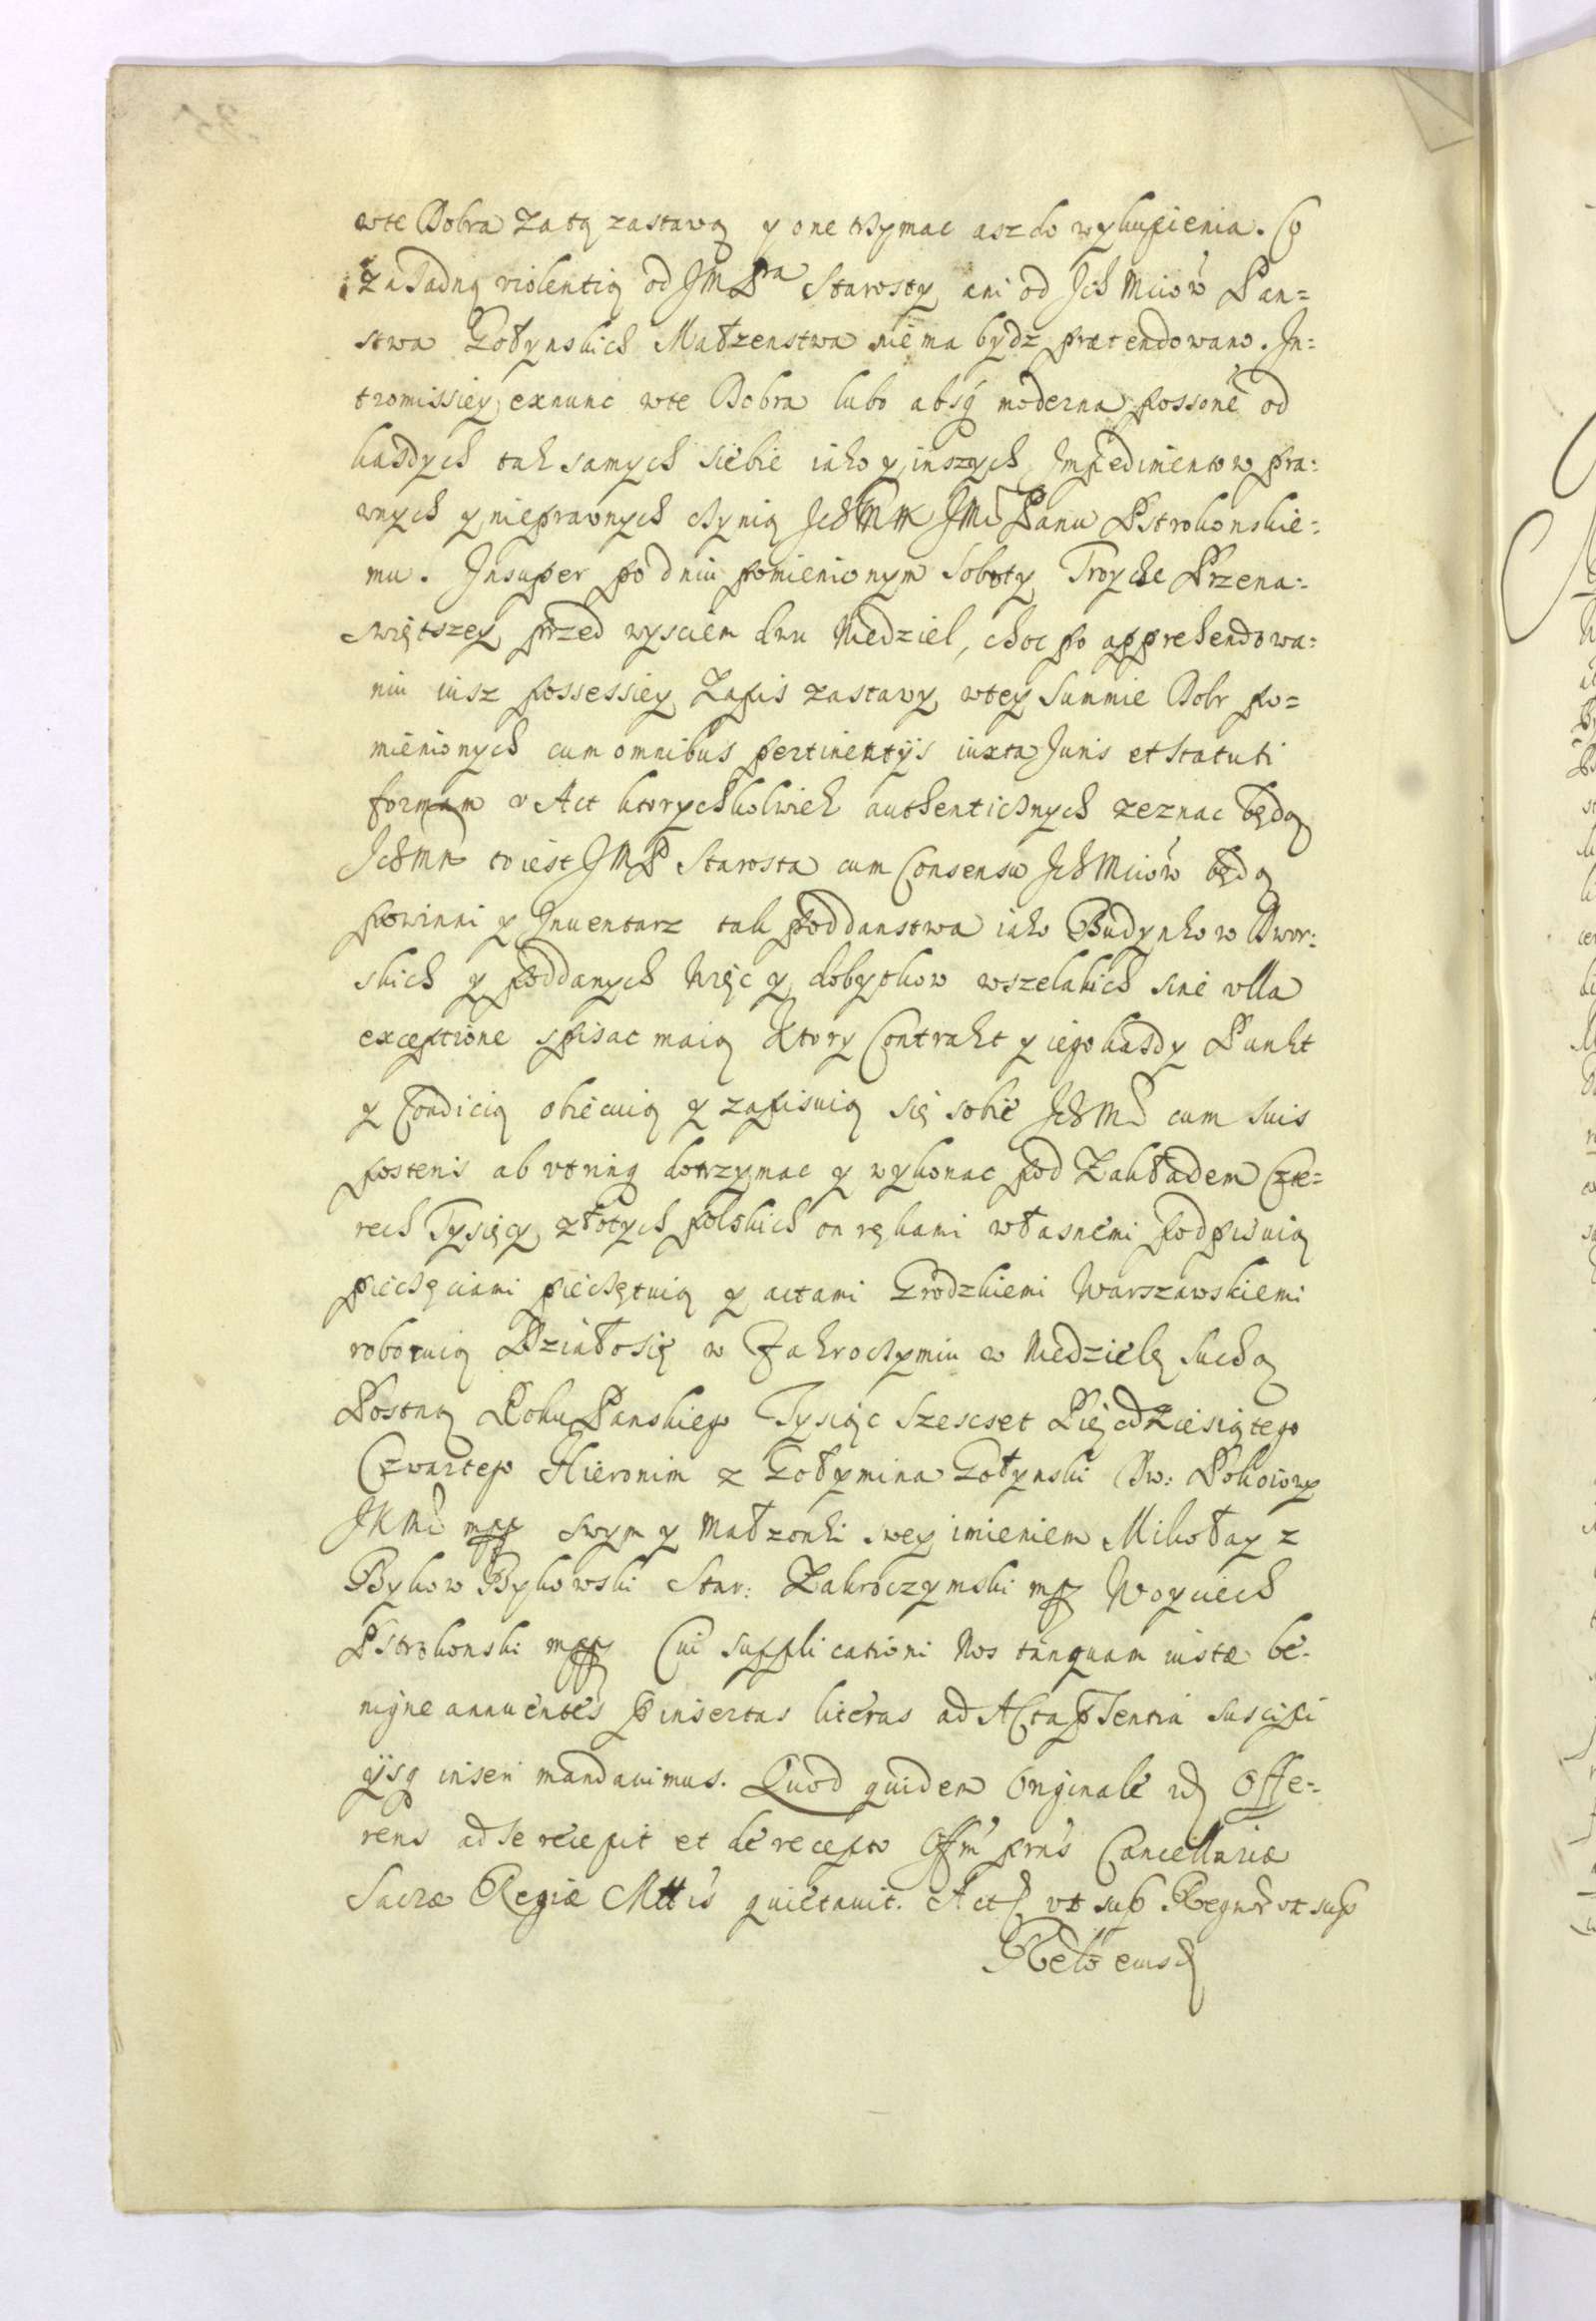 wte Dobra za tą zastawą y one trzymac asz do wykupienia. Co
za żadną violentią od JMPna Starosty ani od Ich Mciow Pan=
stwa Gołynskich Małzenstwa nie ma bydz prætendowano. In=
tromissiey exnunc wte Dobra lubo absq moderna possone od
każdych tak samych siebie iako y inszych Impedimentow pra=
wnych y nieprawnych czynią IchMM JMci Panu Pstrokonskie=
mu. Insuper po dniu pomienionym Soboty Troyce Przena=
swiętszey przed wysciem dwu Niedziel, choc po apprehendowa=
niu iusz possessiey Zapis zastawy wtey Summie Dobr po=
mienionych cum omnibus pertinentijs iuxta Juris et Statuti
formam v Act ktorychkolwiek authenticznych zeznac będą
IchMM to iest JMP Starosta cum Consensu IchMciow będą
powinni y Inuentarz tak poddanstwa iako Budynkow Dwor=
skich y poddanych Więc y dobytkow wszelakich sine vlla
exceptione spisac maią Ktory Contrakt y iego każdy Punkt
y Condicią obiecuią y zapisuią się sobie IchMc cum suis
posteris ab vtrinq dotrzymac y wykonac pod Zakładem Czte=
rech Tysięcy złotych polskich on rękami własnemi podpisuią
pieczęciami pieczętuią y actami Grodzkiemi Warszawskiemi
roboruią Działo się w Zakroczymiu w Niedzielę Suchą
Postną Roku Panskiego Tysiąc Szescset Pięcdziesiątego
Czwartego Hieronim z Gołymina Gołynski Dw: Pokoiowy
JKMci mpp swym y Małzonki swey imieniem Mikołay z
Bykow Bykowski Star: Zakroczymski mp Woyciech
Pstrokonski mpp Cui supplicationi Nos tanquam iustæ be=
nigne annuentes pinsertas literas ad Acta psentia suscipi
ijsq inseri mandauimus. Quod quidem Originale id Offe=
rens ad se recepit et de recepto Offm prns Cancellariæ
Sacræ Regiæ Mttis quietauit. Act vt sup Regnor vt sup